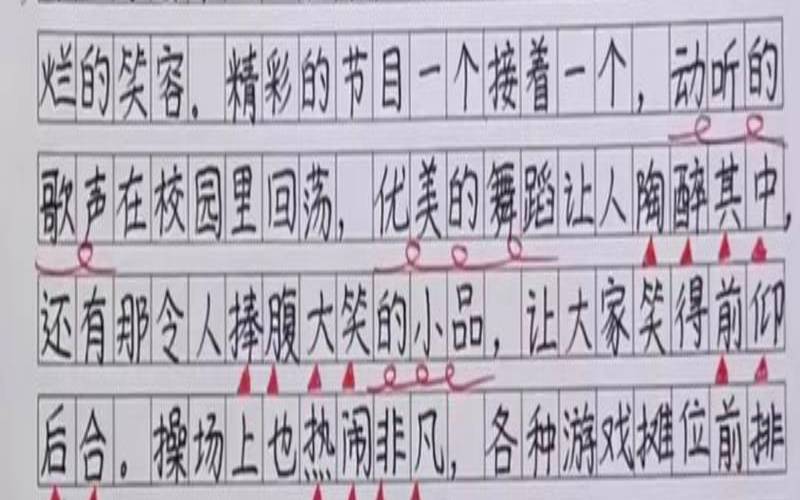 烂的笑容。精彩的节目一个接着一个,动听的
歌声在校园里回荡,优美的舞蹈让人陶醉其中,
还有那令人捧腹大笑的小品,让大家笑得前仰
后合。操场上也热闹非凡,各种游戏摊位前排